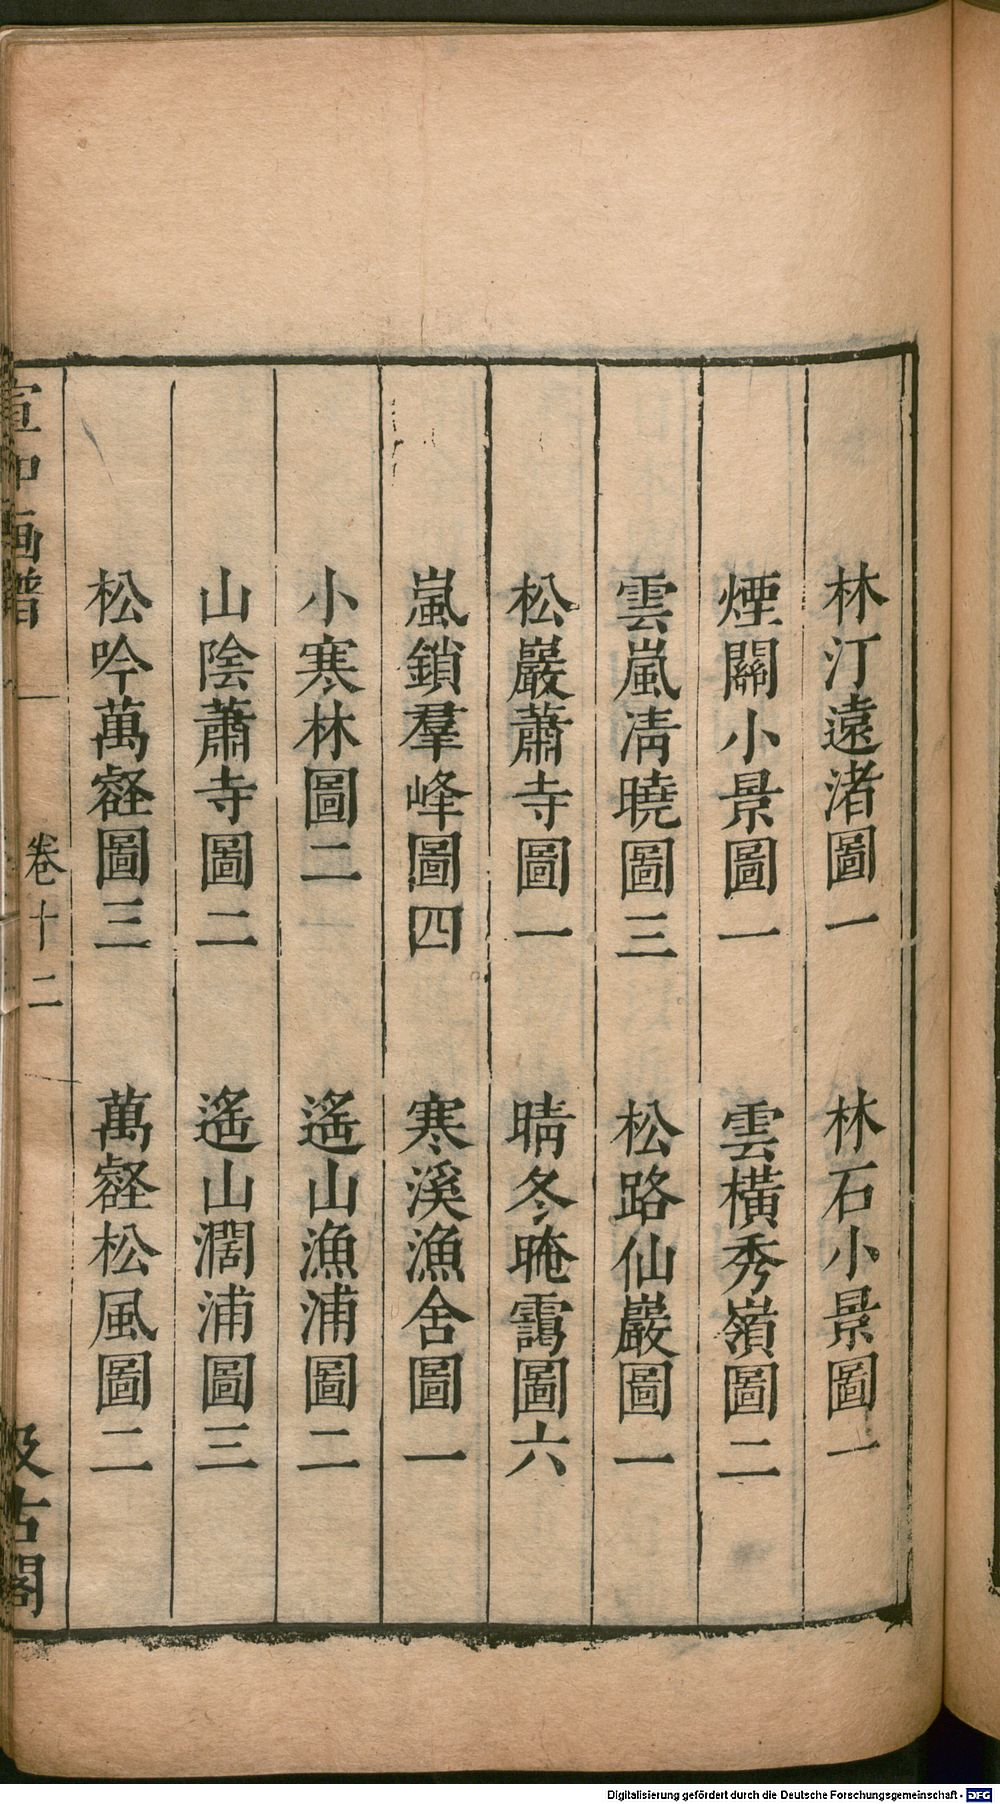 林汀遠渚圖一　林石小景圖一
煙關小景圖一　雲橫秀嶺圖二
雲嵐淸曉圖三　松路仙巖圖一
松巖蕭寺圖一　晴冬晻靄圖六
嵐鎖羣峰圖四　寒溪漁舍圖一
小寒林圖二　遙山漁浦圖二
山陰蕭寺圖二　遙山濶浦圖三
松吟萬壑圖三　萬壑松風圖二
宣和画譜　卷十二　汲古閣
Digitalisierung gefördert durch die Deutsche Forschungsgemeinschaft - DFG